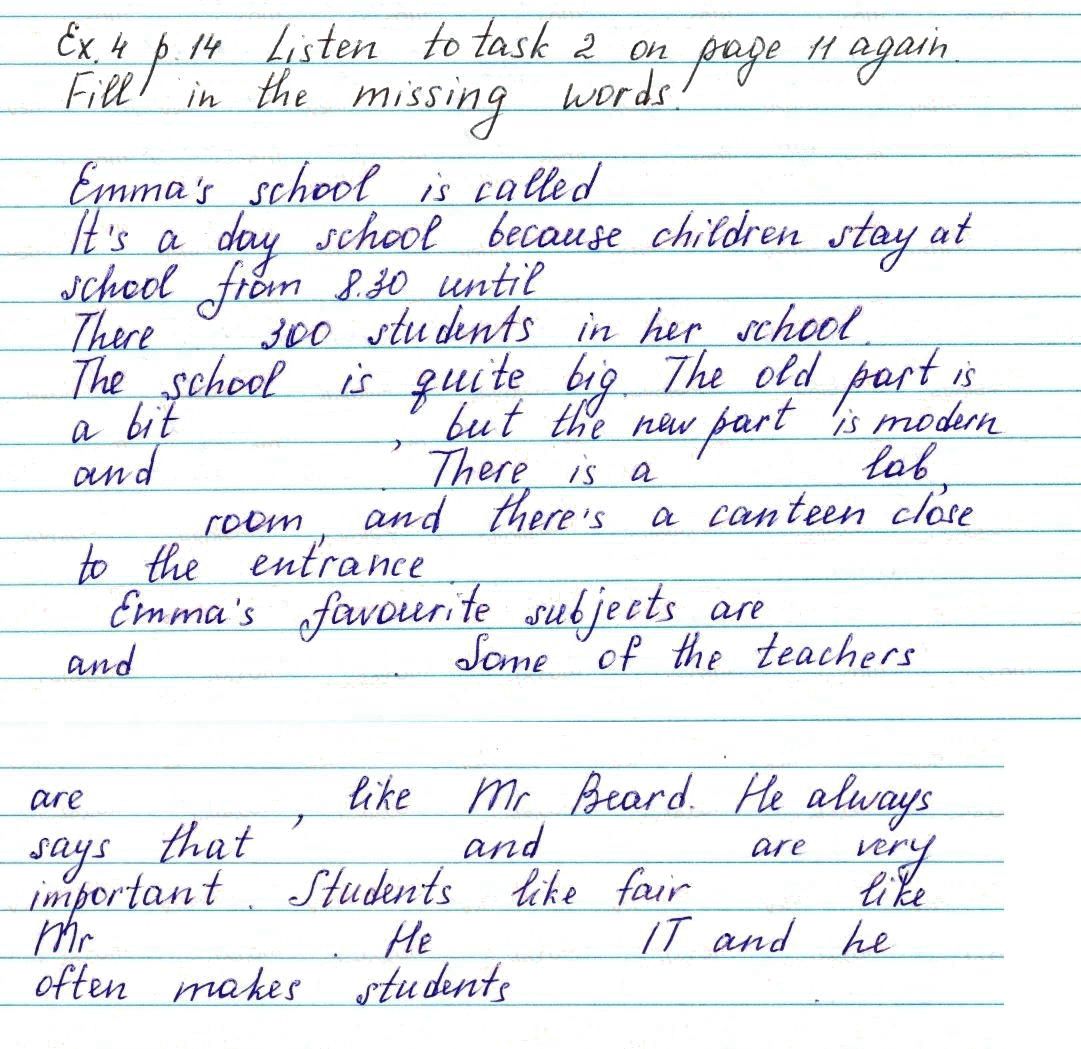 Ex. 4 p. 14 Listen to task 2 on page 11 again.
Fill in the missing words.
Emma's school is called
It's a day school because children stay at
school from 8.30 until
There 300 students in her school.
The school is quite big. The old part is
a bit , but the new part is modern
and . There is a lab,
room, and there's a canteen close
to the entrance.
Emma's favourite subjects are
and . Some of the teachers
are , like Mr Beard. He always
says that and are very
important. Students like fair like
Mr . He IT and he
often makes students .